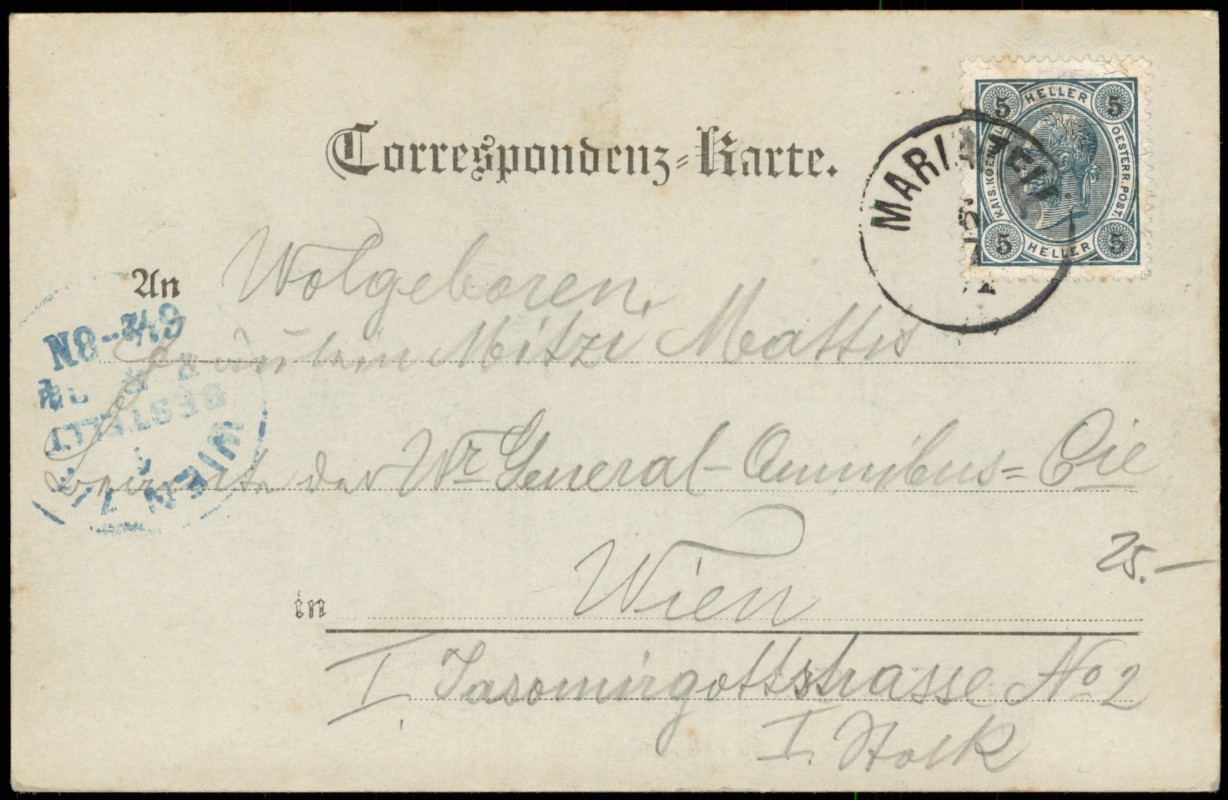 Correspondenz-Karte.
HELLER
5 5
KAIS. KOENIGL. OESTERR. POST.
5 5
HELLER
MARIAZELL
An Wolgeboren
Fräulein Mitzi Mattis
6½-8N
BESTELLT
WIEN
Beamte der Wr General-Omnibus=Cie
25.—
in Wien
I. Jasomirgottstrasse No 2
I. Stock